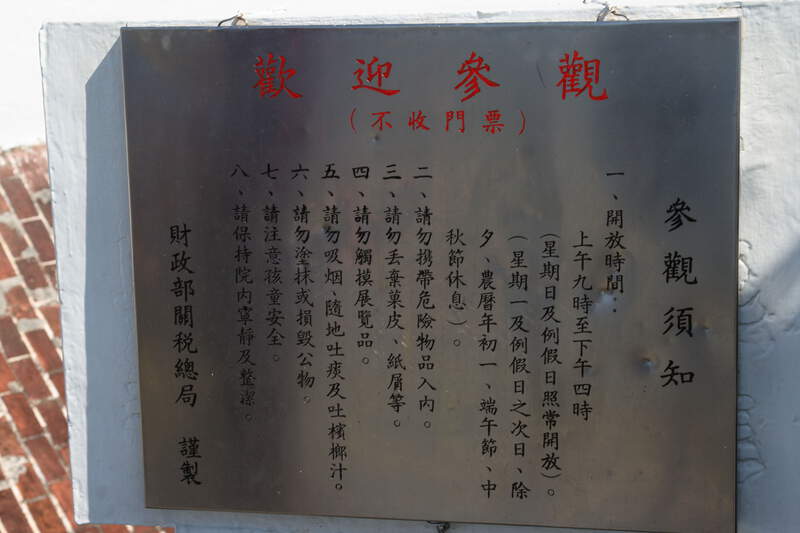 歡迎參觀
（不收門票）
參觀須知
一、開放時間：
上午九時至下午四時
（星期日及例假日照常開放）。
（星期一及例假日之次日、除
夕、農曆年初一、端午節、中
秋節休息）。
二、請勿携帶危險物品入內。
三、請勿丟棄菓皮、紙屑等。
四、請勿觸摸展覽品。
五、請勿吸烟、隨地吐痰及吐檳榔汁。
六、請勿塗抹或損毀公物。
七、請注意孩童安全。
八、請保持院內寧靜及整潔。
財政部關稅總局 謹製